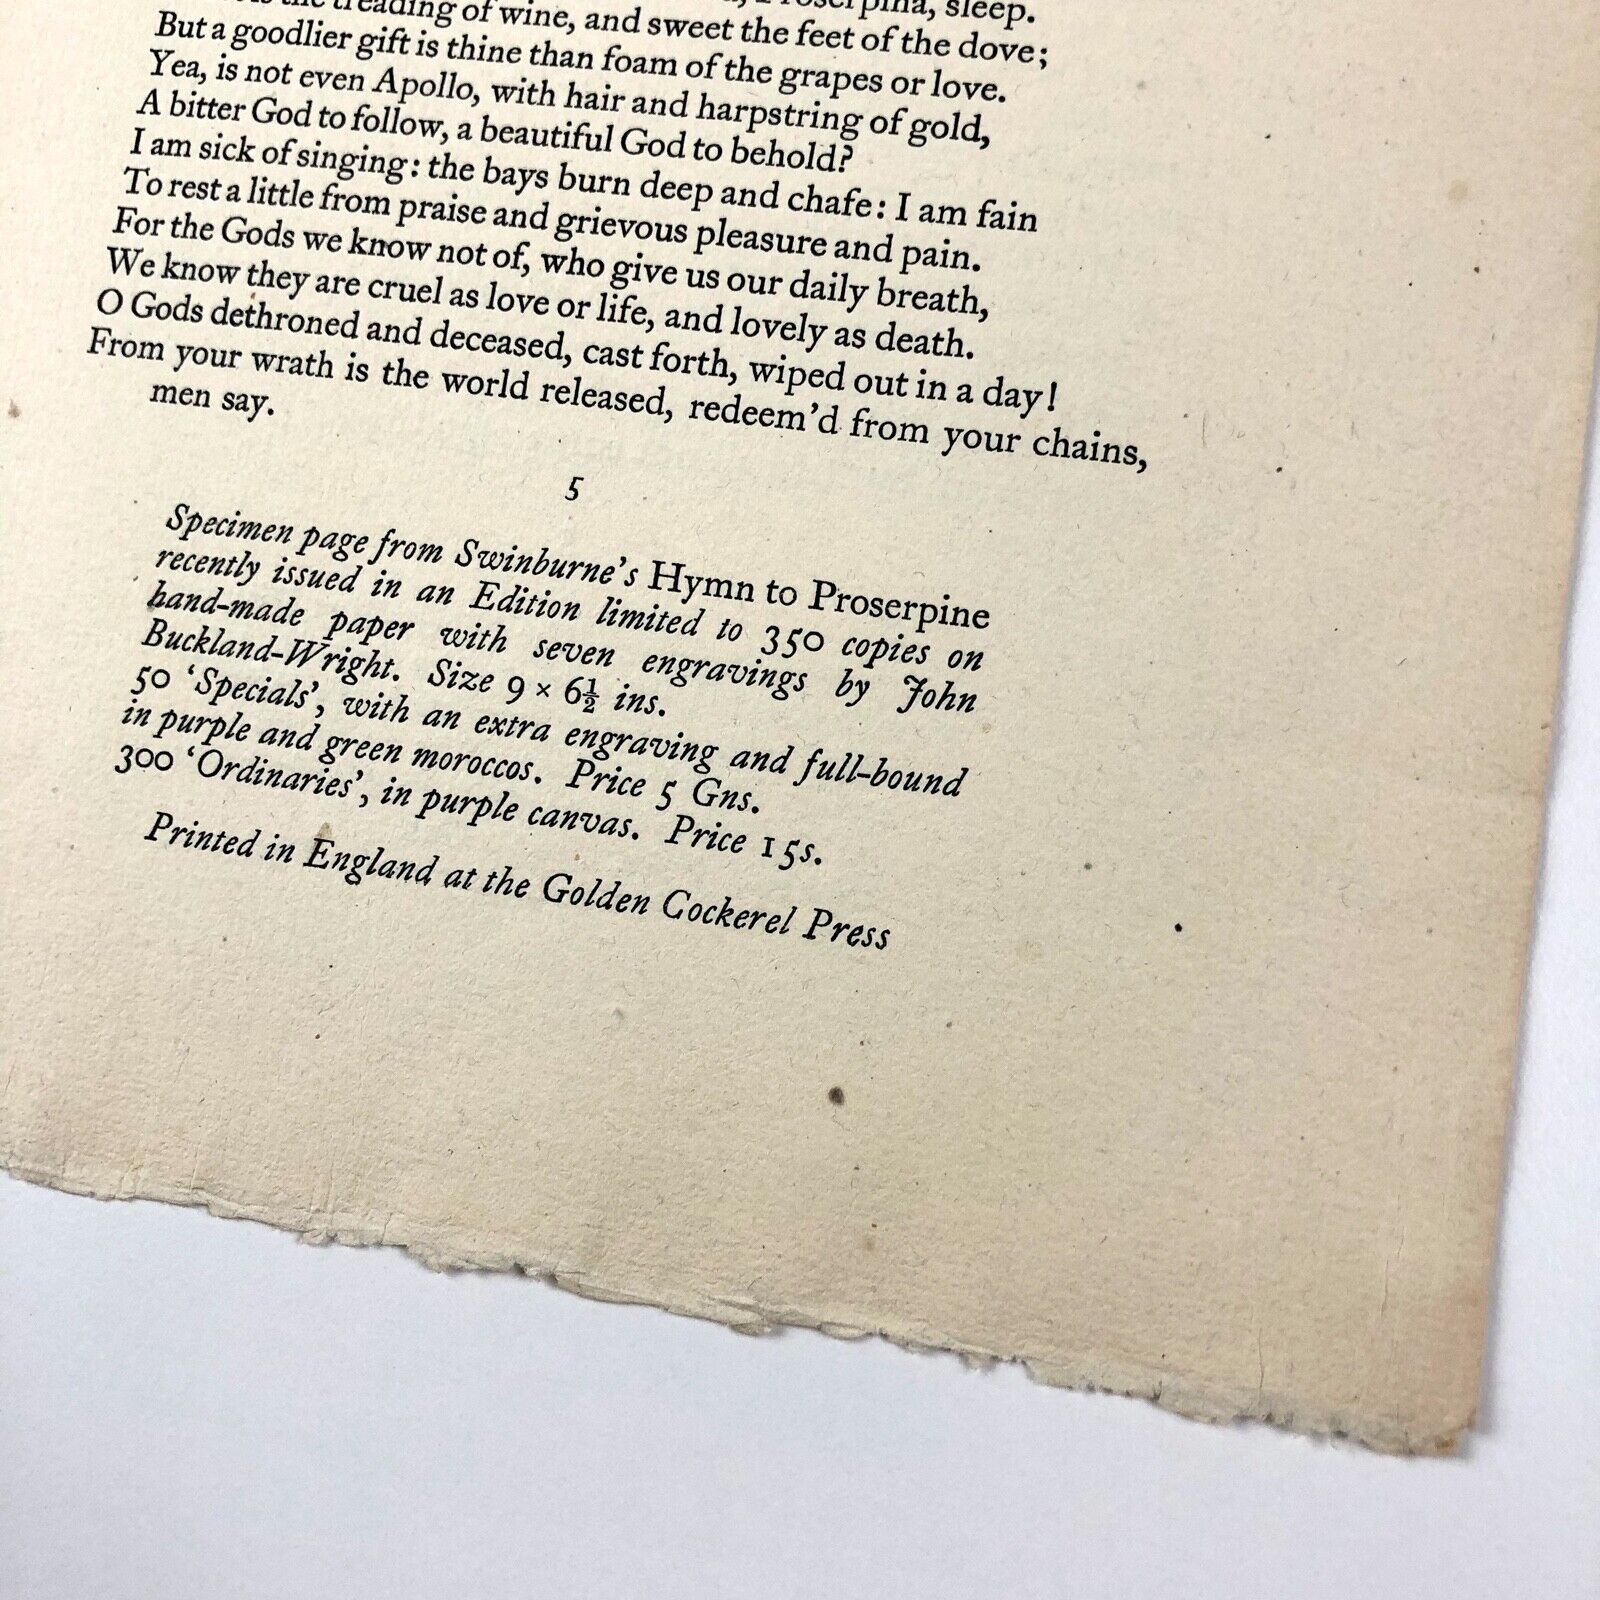 Proserpina, sleep.
the treading of wine, and sweet the feet of the dove;
But a goodlier gift is thine than foam of the grapes or love.
Yea, is not even Apollo, with hair and harpstring of gold,
A bitter God to follow, a beautiful God to behold?
I am sick of singing: the bays burn deep and chafe: I am fain
To rest a little from praise and grievous pleasure and pain.
For the Gods we know not of, who give us our daily breath,
We know they are cruel as love or life, and lovely as death.
O Gods dethroned and deceased, cast forth, wiped out in a day!
From your wrath is the world released, redeem'd from your chains,
men say.
5
Specimen page from Swinburne's Hymn to Proserpine
recently issued in an Edition limited to 350 copies on
hand-made paper with seven engravings by John
Buckland-Wright. Size 9 × 6½ ins.
50 'Specials', with an extra engraving and full-bound
in purple and green moroccos. Price 5 Gns.
300 'Ordinaries', in purple canvas. Price 15s.
Printed in England at the Golden Cockerel Press